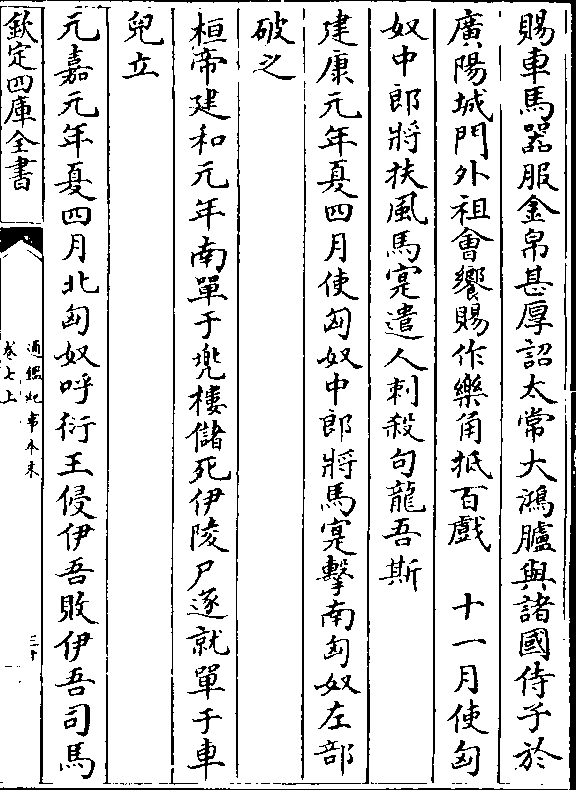 賜車馬器服金帛甚厚詔太常大鴻臚與諸國侍子於
廣陽城門外祖會饗賜作樂角抵百戲　十一月使匈
奴中郎將扶風馬寔遣人刺殺句龍吾斯
建康元年夏四月使匈奴中郎將馬寔擊南匈奴左部
破之
桓帝建和元年南單于兠樓儲死伊陵尸逐就單于車
兒立
元嘉元年夏四月北匈奴呼衍王侵伊吾敗伊吾司馬
欽定四庫全書
通鑑紀事本末
卷七上
三十